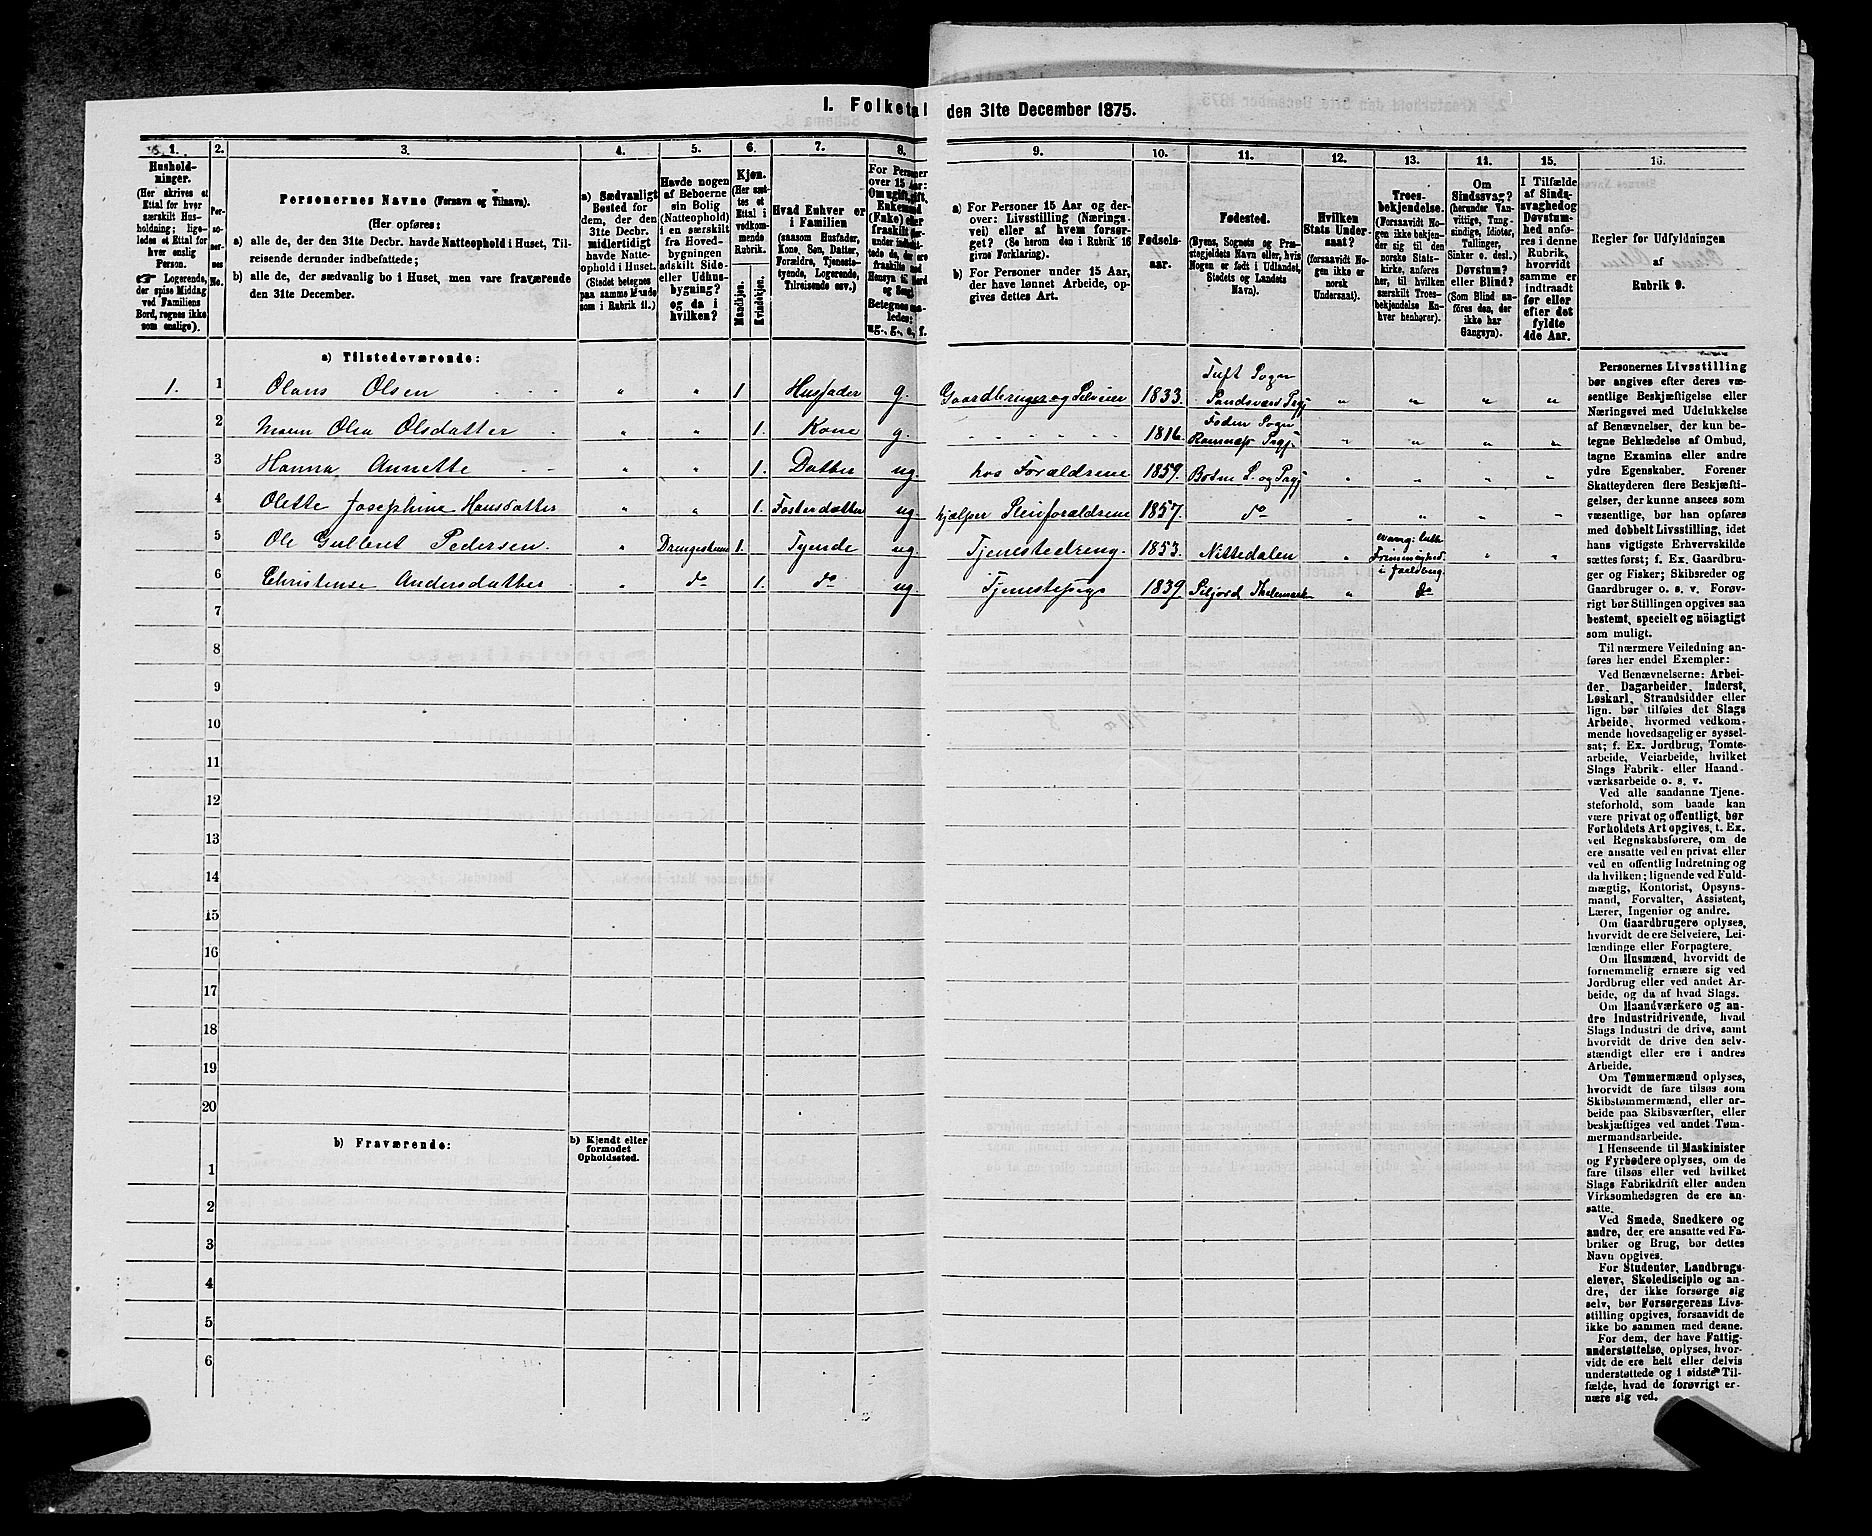 I. Folketal den 31te December 1875.
1.
2.
3.
4.
5.
6.
7.
8.
9.
10.
11.
12.
13.
14.
15.
16.
Hushold-
ninger.
(Her skrives et
Ettal for hver
særskilt Hus-
holdning; lige-
ledes et Ettal for
hver enslig
Person.
Logerende,
der spise Middag
ved Familiens
Bord, regnes ikke
som enslige).
Per-
so-
ner-
nes
No.
Personernes Navne (Fornavn og Tilnavn).
(Her opføres:
a) alle de, der den 31te Decbr. havde Natteophold i Huset, Til-
reisende derunder indbefattede;
b) alle de, der sædvanlig bo i Huset, men vare fraværende
den 31te December.
a) Sædvanligt
Bosted for
dem, der den
31te Decbr.
midlertidigt
havde Natte-
ophold i Huset.
(Stedet betegnes
paa samme Maade
som i Rubrik 11.)
Havde nogen
af Beboerne
sin Bolig
(Natteophold)
i en særskilt
fra Hoved-
bygningen
adskilt Side-
eller Udhus-
bygning?
og da i
hvilken?
Kjøn.
(Her sæt-
tes et
Ettal i
vedkom-
mende
Rubrik.
Mandkjøn.
Kvindekjøn.
Hvad Enhver er
i Familien
(saasom Husfader,
Kone, Søn, Datter,
Forældre, Tjeneste-
tyende, Logerende,
Tilreisende osv.)
For Personer
over 15 Aar:
Om ugift, gift,
Enkemand
(Enke) eller
fraskilt
Betegnes saa-
ledes:
ug., g., e., f.
a) For Personer 15 Aar og der-
over: Livsstilling (Nærings-
vei) eller af hvem forsør-
get? (Se herom den i Rubrik 16
givne Forklaring).
b) For Personer under 15 Aar,
der have lønnet Arbeide, op-
gives dettes Art.
Fødsels-
aar.
Fødested.
(Byens, Sognets og Præ-
stegjeldets Navn eller, hvis
Nogen er født i Udlandet,
Stedets og Landets
Navn).
Hvilken
Stats Under-
saat?
(forsaavidt No-
gen ikke er
norsk
Undersaat).
Troes-
bekjendelse.
(Forsaavidt No-
gen ikke bekjen-
der sig til den
norske Stats-
kirke, anføres
her, til hvilken
særskilt Troes-
bekjendelse En-
hver henhører).
Om
Sindssvag?
(herunder Van-
vittige, Tung-
sindige, Idioter,
Tullinger,
Sinker o. desl.)
Døvstum?
eller Blind?
(Som Blind an-
føres den, der
ikke har
Gangsyn).
I Tilfælde
af Sinds-
svaghed og
Døvstum-
hed anfø-
res i denne
Rubrik,
hvorvidt
samme er
indtraadt
før eller
efter det
fyldte
4de Aar.
Regler for Udfyldningen
af
Rubrik 9.
a) Tilstedeværende:
1. 1 Olaus Olsen " " 1 Husfader g. Gaardbruger og Selveier 1833. Tuft Sogn Sandsværd Prgj " " " "
2 Maren Olea Olsdatter " " 1. Kone g. " " " " 1816. Sogn Ramnæs Prgj. " " " "
3 Hanna Annette " " 1. Datter ug. hos Forældrene 1859. Botne S. og Prgj " " " "
4 Olette Josephine Hansdatter " " 1 Fosterdatter ug hjælper Pleieforældrene 1857. do " " " "
5 Ole Gulbret Pedersen " 1. Tyende ug. Tjenestedreng. 1853. Nittedalen " evang: luth Frimenighed i Jarlsberg " "
6 Christense Andersdatter " do 1. do ug. Tjenestepige 1839. Siljord Thelemark " do
7
8
9
10
11
12
13
14
15
16
17
18
19
20
b) Fraværende:
b) Kjendt eller
formodet
Opholdssted.
1
2
3
4
5
6
Personernes Livsstilling
bør angives efter deres væ-
sentlige Beskjæftigelse eller
Næringsvei med Udelukkelse
af Benævnelser, der kun be-
tegne Beklædelse af Ombud,
tagne Examina eller andre
ydre Egenskaber. Forener
Skatteyderen flere Beskjæfti-
gelser, der kunne ansees som
væsentlige, bør han opføres
med dobbelt Livsstilling, idet
hans vigtigste Erhvervskilde
sættes først; f. Ex. Gaardbru-
ger og Fisker; Skibsreder og
Gaardbruger o. s. v. Forøv-
rigt bør Stillingen opgives saa
bestemt, specielt og nøiagtigt
som muligt.
Til nærmere Veiledning an-
føres her endel Exempler:
Ved Benævnelserne: Arbei-
der, Dagarbeider, Inderst,
Løskarl, Strandsidder eller
lign. bør tilføies det Slags
Arbeide, hvormed vedkom-
mende hovedsagelig er syssel-
sat; f. Ex. Jordbrug, Tomte-
arbeide, Veiarbeide, hvilket
Slags Fabrik- eller Haand-
værksarbeide o. s. v.
Ved alle saadanne Tjene-
steforhold, som baade kan
være privat og offentligt, bør
Forholdets Art opgives, t. Ex.
ved Regnskabsførere, om de
ere ansatte ved en privat eller
ved en offentlig Indretning og
da hvilken; lignende ved Fuld-
mægtig, Kontorist, Opsyns-
mand, Forvalter, Assistent,
Lærer, Ingeniør og andre.
Om Gaardbrugere oplyses,
hvorvidt de ere Selveiere, Lei-
lændinge eller Forpagtere.
Om Husmænd, hvorvidt de
fornemmelig ernære sig ved
Jordbrug eller ved andet Ar-
beide, og da af hvad Slags.
Om Haandværkere og an-
dre Industridrivende, hvad
Slags Industri de drive, samt
hvorvidt de drive den selv-
stændigt eller ere i andres
Arbeide.
Om Tømmermænd oplyses,
hvorvidt de fare tilsøs som
Skibstømmermænd, eller ar-
beide paa Skibsværfter, eller
beskjæftiges ved andet Tøm-
mermandsarbeide.
I Henseende til Maskinister
og Fyrbødere oplyses, om de
fare tilsøs eller ved hvilket
Slags Fabrikdrift eller anden
Virksomhedsgren de ere an-
satte.
Ved Smede, Snedkere og
andre, der ere ansatte ved Fa-
briker og Brug, bør dettes
Navn opgives.
For Studenter, Landbrugs-
elever, Skoledisciple og an-
dre, der ikke forsørge sig
selv, bør Forsørgerens Livs-
stilling opgives, forsaavidt de
ikke bo sammen med denne.
For dem, der have Fattig-
understøttelse, oplyses, hvor-
vidt de ere helt eller delvis
understøttede og i sidste Til-
fælde, hvad de forøvrigt er-
nære sig ved.